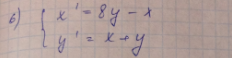 б) { x' = 8y - x
y' = x + y